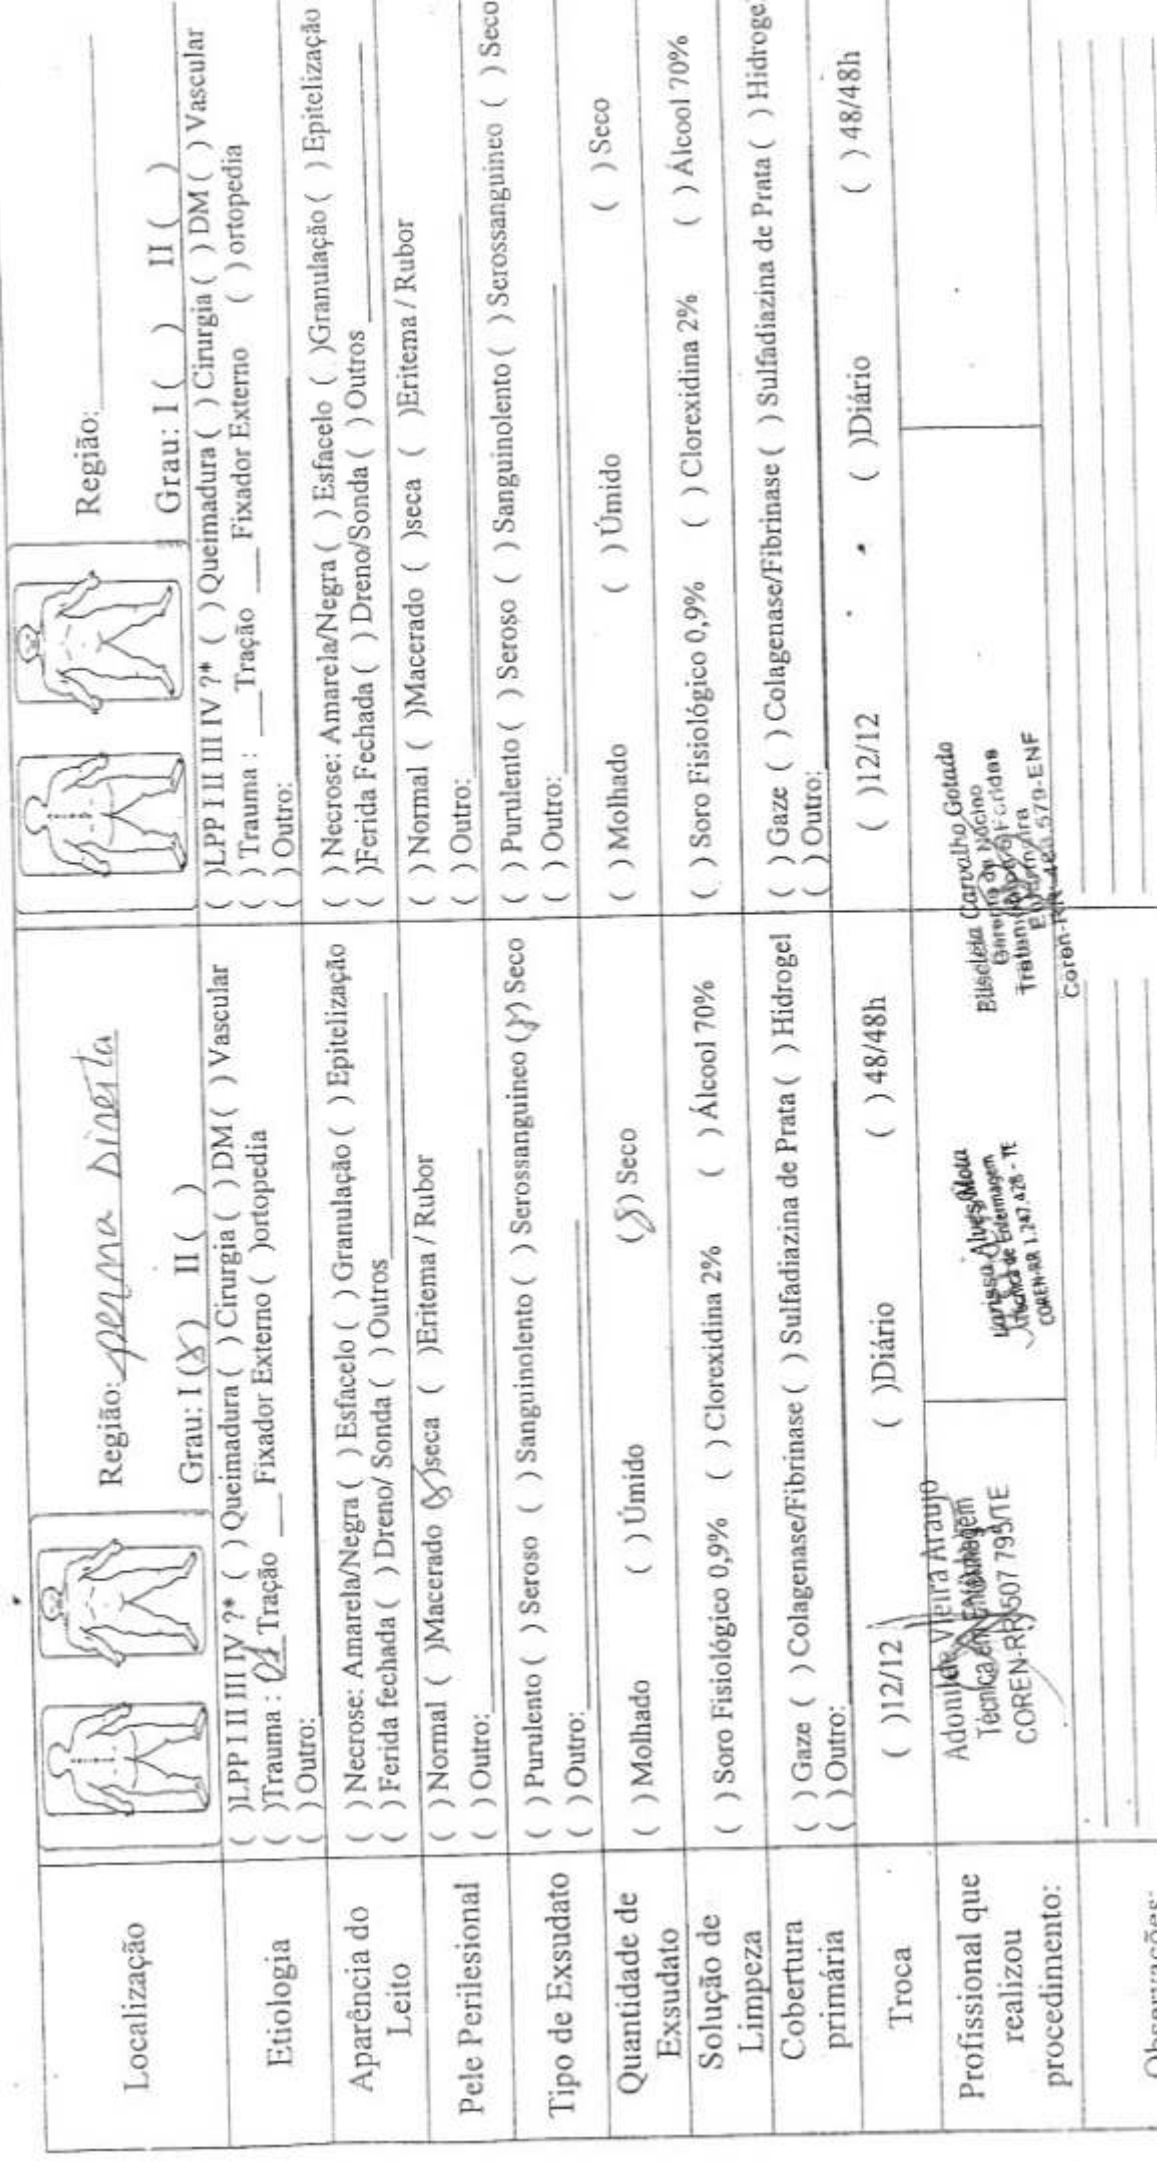 Localização
Região: perna direita
Grau: I (X) II ( )
Região:
Grau: I ( ) II ( )
Etiologia
( )LPP I II III IV ?* ( ) Queimadura ( ) Cirurgia ( ) DM ( ) Vascular
( )Trauma : 01 Tração ___ Fixador Externo ( )ortopedia
( ) Outro:
( )LPP I II III IV ?* ( ) Queimadura ( ) Cirurgia ( ) DM ( ) Vascular
( ) Trauma : ___ Tração ___ Fixador Externo ( ) ortopedia
( ) Outro:
Aparência do
Leito
( ) Necrose: Amarela/Negra ( ) Esfacelo ( ) Granulação ( ) Epitelização
( ) Ferida fechada ( ) Dreno/ Sonda ( ) Outros
( ) Necrose: Amarela/Negra ( ) Esfacelo ( )Granulação ( ) Epitelização
( )Ferida Fechada ( ) Dreno/Sonda ( ) Outros
Pele Perilesional
( ) Normal ( )Macerado (X)seca ( )Eritema / Rubor
( ) Outro:
( ) Normal ( )Macerado ( )seca ( )Eritema / Rubor
( ) Outro:
Tipo de Exsudato
( ) Purulento ( ) Seroso ( ) Sanguinolento ( ) Serossanguineo (X) Seco
( ) Outro:
( ) Purulento ( ) Seroso ( ) Sanguinolento ( ) Serossanguineo ( ) Seco
( ) Outro:
Quantidade de
Exsudato
( ) Molhado ( ) Úmido (X) Seco
( ) Molhado ( ) Úmido ( ) Seco
Solução de
Limpeza
( ) Soro Fisiológico 0,9% ( ) Clorexidina 2% ( ) Álcool 70%
( ) Soro Fisiológico 0,9% ( ) Clorexidina 2% ( ) Álcool 70%
Cobertura
primária
( ) Gaze ( ) Colagenase/Fibrinase ( ) Sulfadiazina de Prata ( ) Hidrogel
( ) Outro:
( ) Gaze ( ) Colagenase/Fibrinase ( ) Sulfadiazina de Prata ( ) Hidrogel
( ) Outro:
Troca
( )12/12 ( )Diário ( ) 48/48h
( )12/12 ( )Diário ( ) 48/48h
Profissional que
realizou
procedimento:
Adonilde Vieira Araujo
Técnica em Enfermagem
COREN-RR 507 795/TE
Larissa Alves Mota
Técnica de Enfermagem
COREN-RR 1.247.428 - TE
Carvalho Gotado
Gerente do Núcleo
Feridas
Enfermeira
579-ENF
Observações: